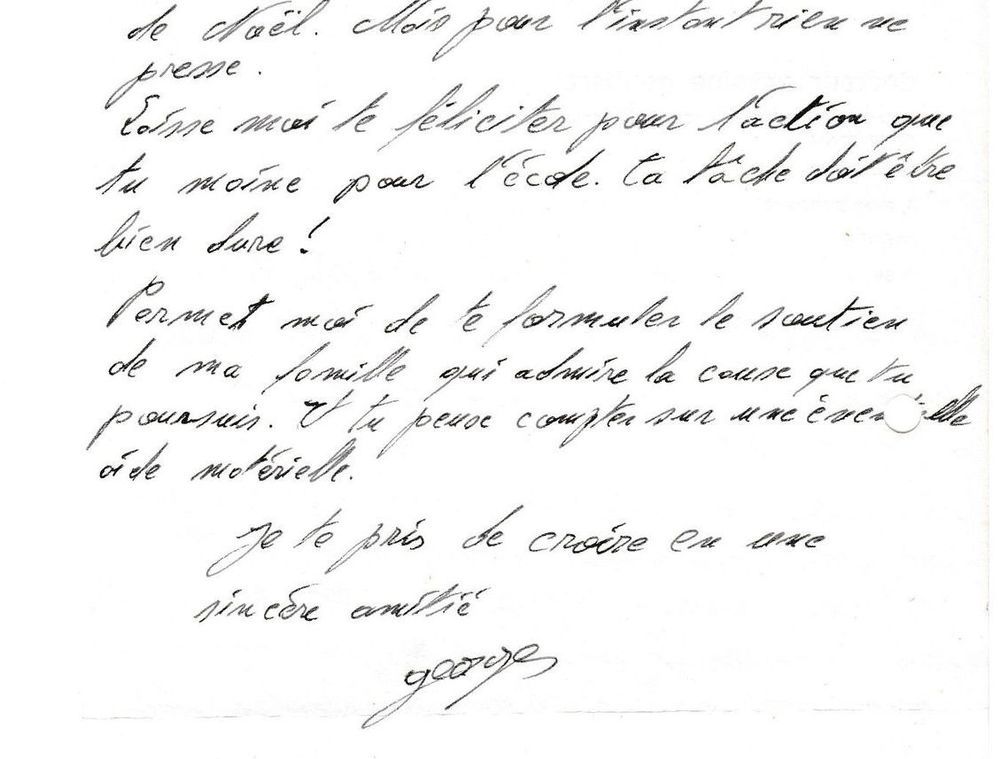 de Noël. Mais pour l'instant rien ne
presse.
Laisse moi te féliciter pour l'action que
tu mène pour l'école. Ta tâche doit être
bien dure !
Permet moi de te formuler le soutien
de ma famille qui admire la cause que tu
poursuis. Et tu peux compter sur une
aide matérielle.
Je te pris de croire en une
sincère amitié
georges